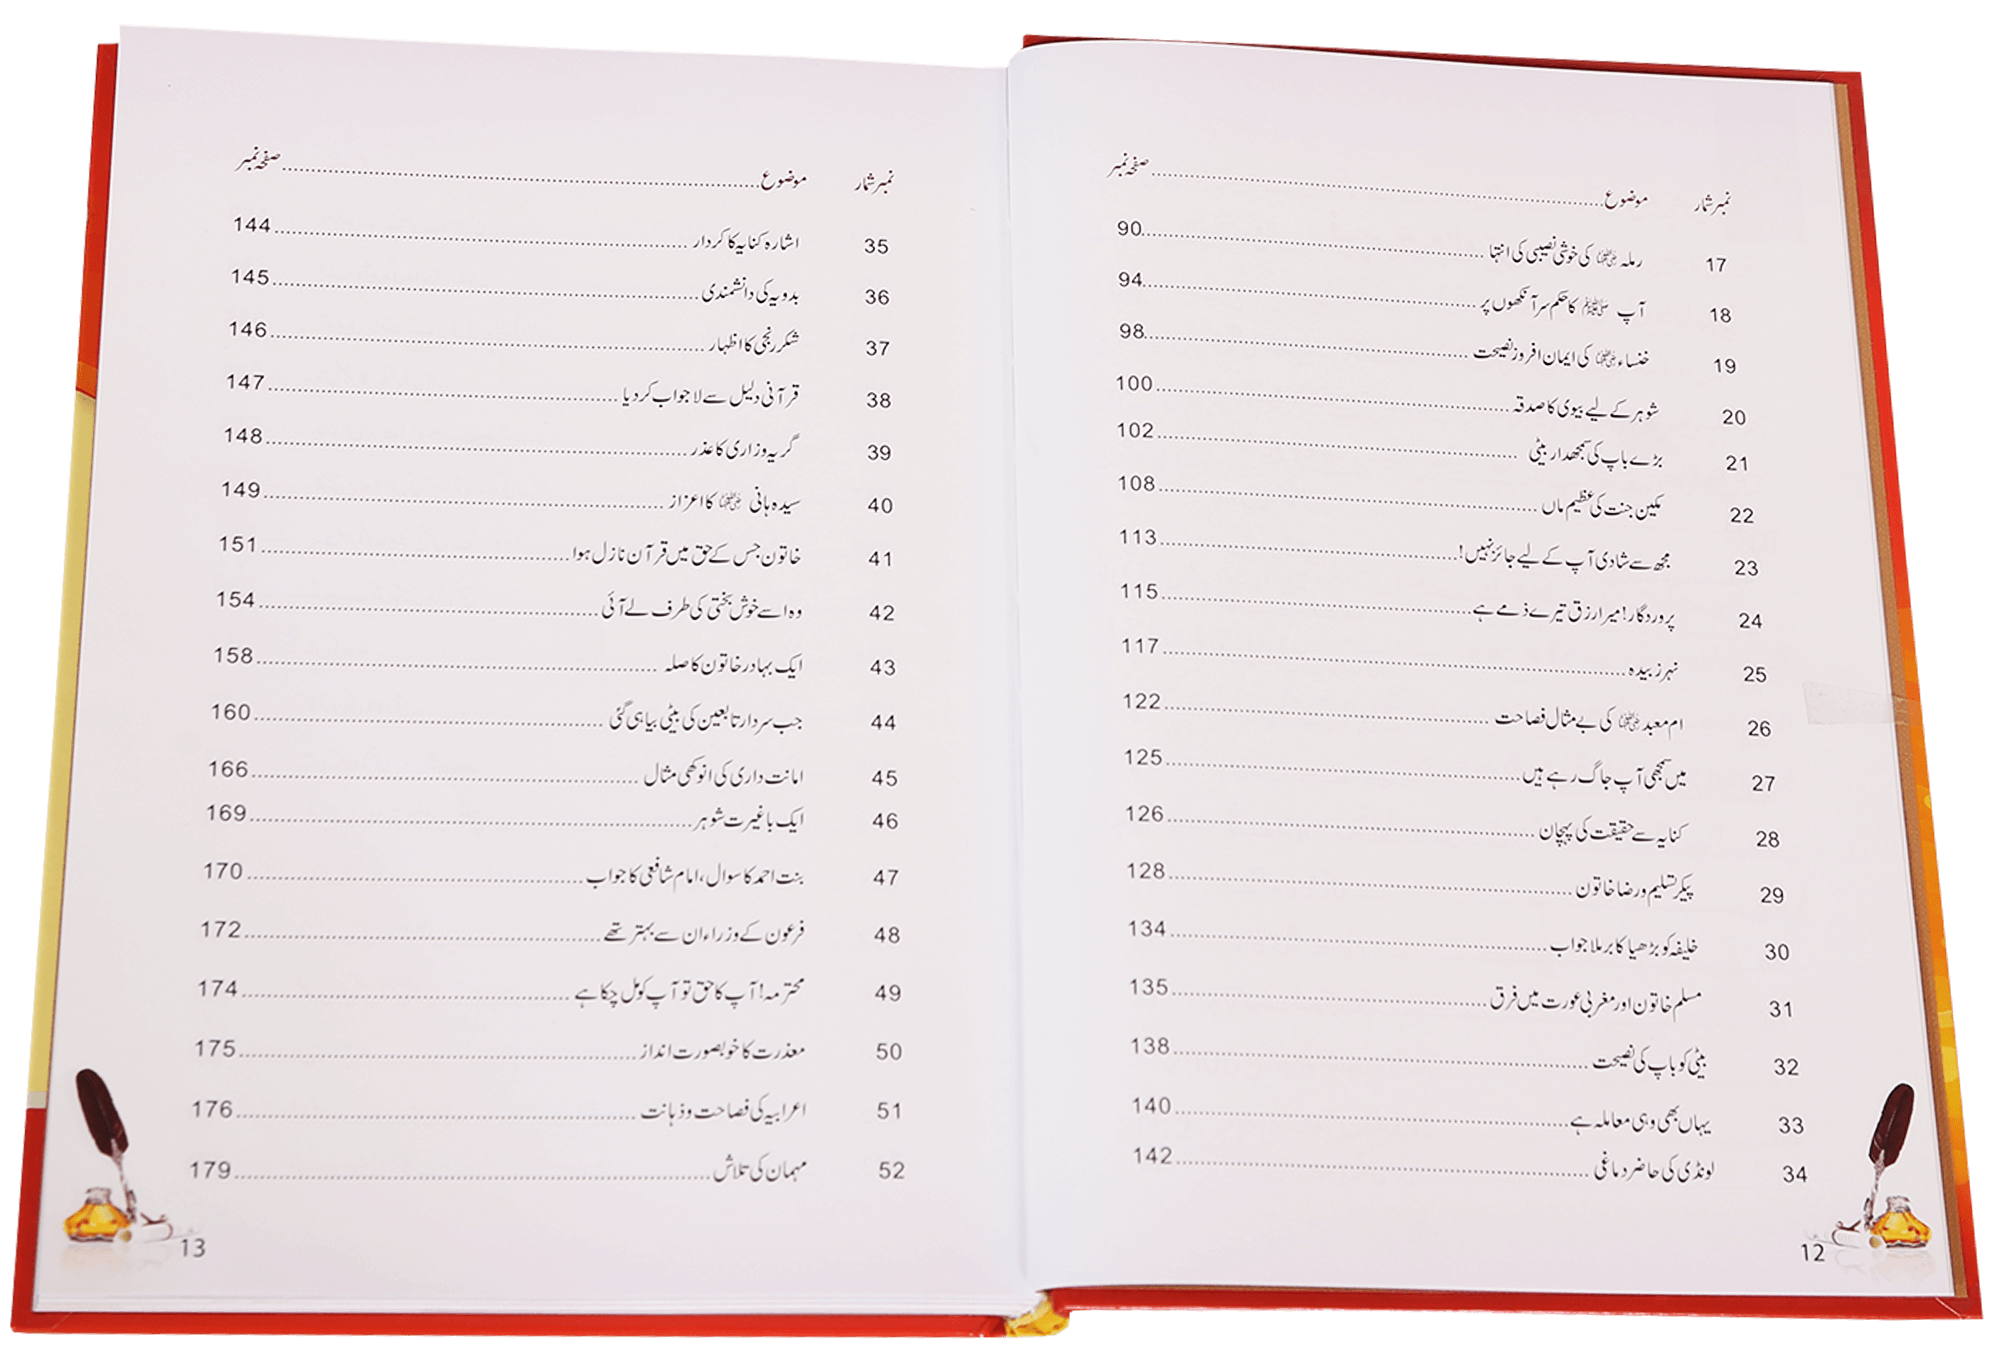 نمبر شمار موضوع........................صفحہ نمبر
17 رملہ رضی اللہ عنہا کی خوشی نصیبی کی انتہا........................90
18 آپ ﷺ کا حکم سر آنکھوں پر........................94
19 خنساء رضی اللہ عنہا کی ایمان افروز نصیحت........................98
20 شوہر کے لیے بیوی کا صدقہ........................100
21 بڑے باپ کی سمجھدار بیٹی........................102
22 مکین جنت کی عظیم ماں........................108
23 مجھ سے شادی آپ کے لیے جائز نہیں!........................113
24 پروردگار! میرا رزق تیرے ذمے ہے........................115
25 نہر زبیدہ........................117
26 ام معبد رضی اللہ عنہا کی بے مثال فصاحت........................122
27 میں سمجھی آپ جاگ رہے ہیں........................125
28 کنایہ سے حقیقت کی پہچان........................126
29 پیکر تسلیم و رضا خاتون........................128
30 خلیفہ کو بڑھیا کا برملا جواب........................134
31 مسلم خاتون اور مغربی عورت میں فرق........................135
32 بیٹی کو باپ کی نصیحت........................138
33 یہاں بھی وہی معاملہ ہے........................140
34 لونڈی کی حاضر دماغی........................142
12
نمبر شمار موضوع........................صفحہ نمبر
35 اشارہ کنایہ کا کردار........................144
36 بدویہ کی دانشمندی........................145
37 شکر رنجی کا اظہار........................146
38 قرآنی دلیل سے لاجواب کر دیا........................147
39 گریہ وزاری کا عذر........................148
40 سیدہ ہانی رضی اللہ عنہا کا اعزاز........................149
41 خاتون جس کے حق میں قرآن نازل ہوا........................151
42 وہ اسے خوش بختی کی طرف لے آئی........................154
43 ایک بہادر خاتون کا صلہ........................158
44 جب سردار تابعین کی بیٹی بیاہی گئی........................160
45 امانت داری کی انوکھی مثال........................166
46 ایک باغیرت شوہر........................169
47 بنت احمد کا سوال، امام شافعی کا جواب........................170
48 فرعون کے وزراء ان سے بہتر تھے........................172
49 محترمہ! آپ کا حق تو آپ کو مل چکا ہے........................174
50 معذرت کا خوبصورت انداز........................175
51 اعرابیہ کی فصاحت و ذہانت........................176
52 مہمان کی تلاش........................179
13